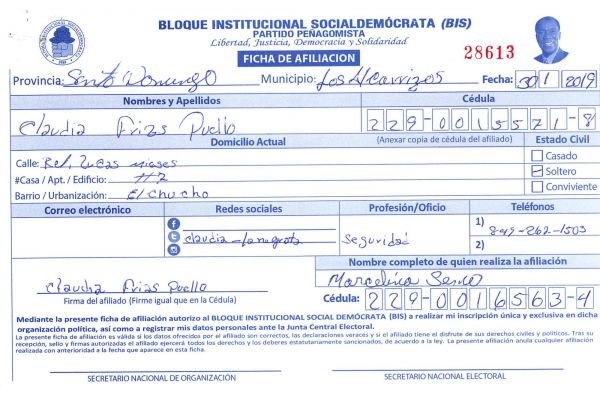 BLOQUE INSTITUCIONAL SOCIALDEMÓCRATA (BIS)
PARTIDO PEÑAGOMISTA
Libertad, Justicia, Democracia y Solidaridad
FICHA DE AFILIACION
28613
Provincia: Santo Domingo Municipio: Los Alcarrizos Fecha: 30 1 2019
Nombres y Apellidos Cédula
Claudia Frias Puello 229-0015571-8
Domicilio Actual (Anexar copia de cédula del afiliado) Estado Civil
Calle: Ref. Lucas
#Casa / Apt./ Edificio: #2
Barrio / Urbanización: El chucho
Casado
Soltero
Conviviente
Correo electrónico Redes sociales Profesión/Oficio Teléfonos
claudia-la Seguridad
1) 849-262-1503
2)
Nombre completo de quien realiza la afiliación
Claudia Frias Puello Marcelina
Firma del afiliado (Firme igual que en la Cédula) Cédula: 229-0016563-4
Mediante la presente ficha de afiliación autorizo al BLOQUE INSTITUCIONAL SOCIAL DEMÓCRATA (BIS) a realizar mi inscripción única y exclusiva en dicha
organización política, así como a registrar mis datos personales ante la Junta Central Electoral.
La presente ficha de afiliación es válida si los datos ofrecidos por el afiliado son correctos, las declaraciones veraces y si el afiliado tiene el disfrute de sus derechos civiles y políticos. Tras su
recepción, sello y firmas autorizadas el afiliado ejercerá todos los derechos y los deberes estatutariamente sancionados, de acuerdo a la ley. La presente afiliación anula cualquier afiliación
realizada con anterioridad a la fecha que aparece en esta ficha.
SECRETARIO NACIONAL DE ORGANIZACIÓN SECRETARIO NACIONAL ELECTORAL